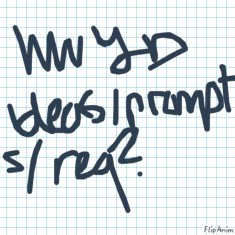 hw y-D
ideas/prompt
s/req?
FlipAnim